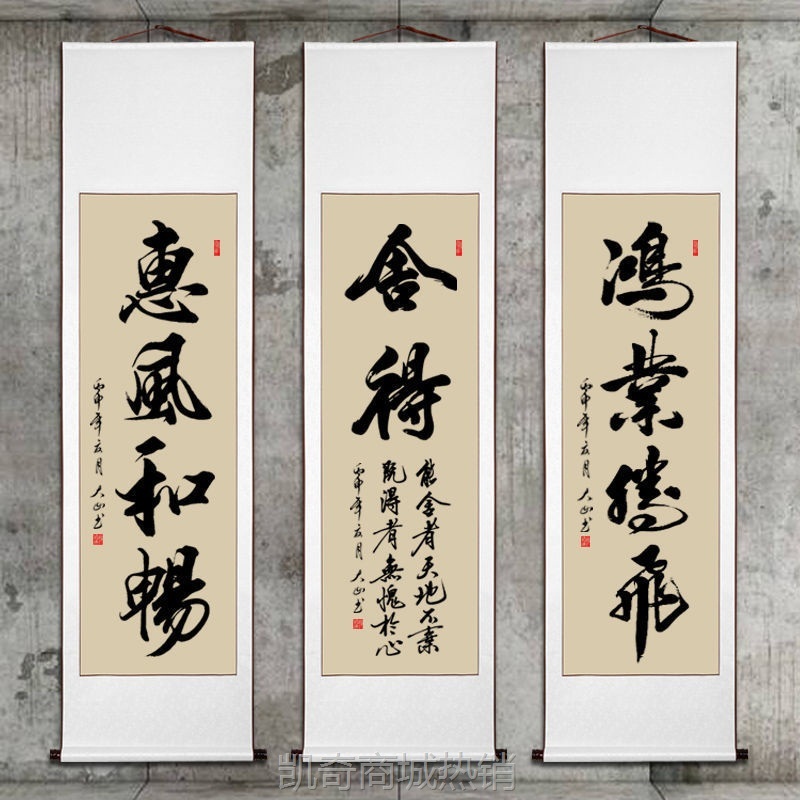 惠風和暢
丙申年 大山書
舍得
能舍者天地不棄
既得者無愧於心
丙申年 大山書
鴻業騰飛
丙申年 大山書
凯奇商城热销